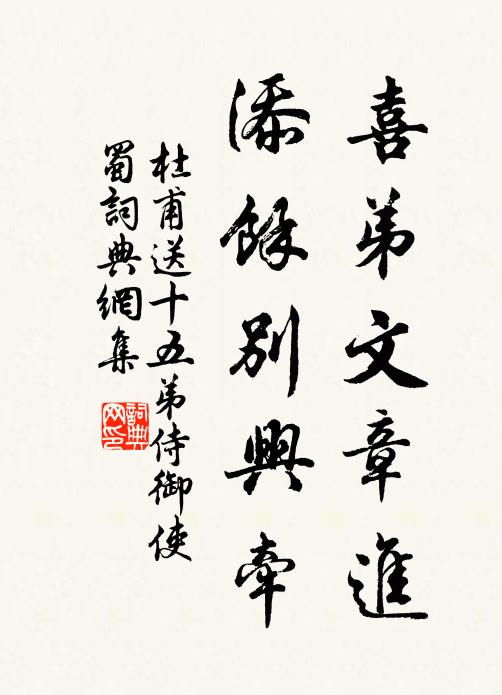 喜弟文章進
添餘別興牽
杜甫送十五弟侍御使
蜀詞典網集
詞典
网印